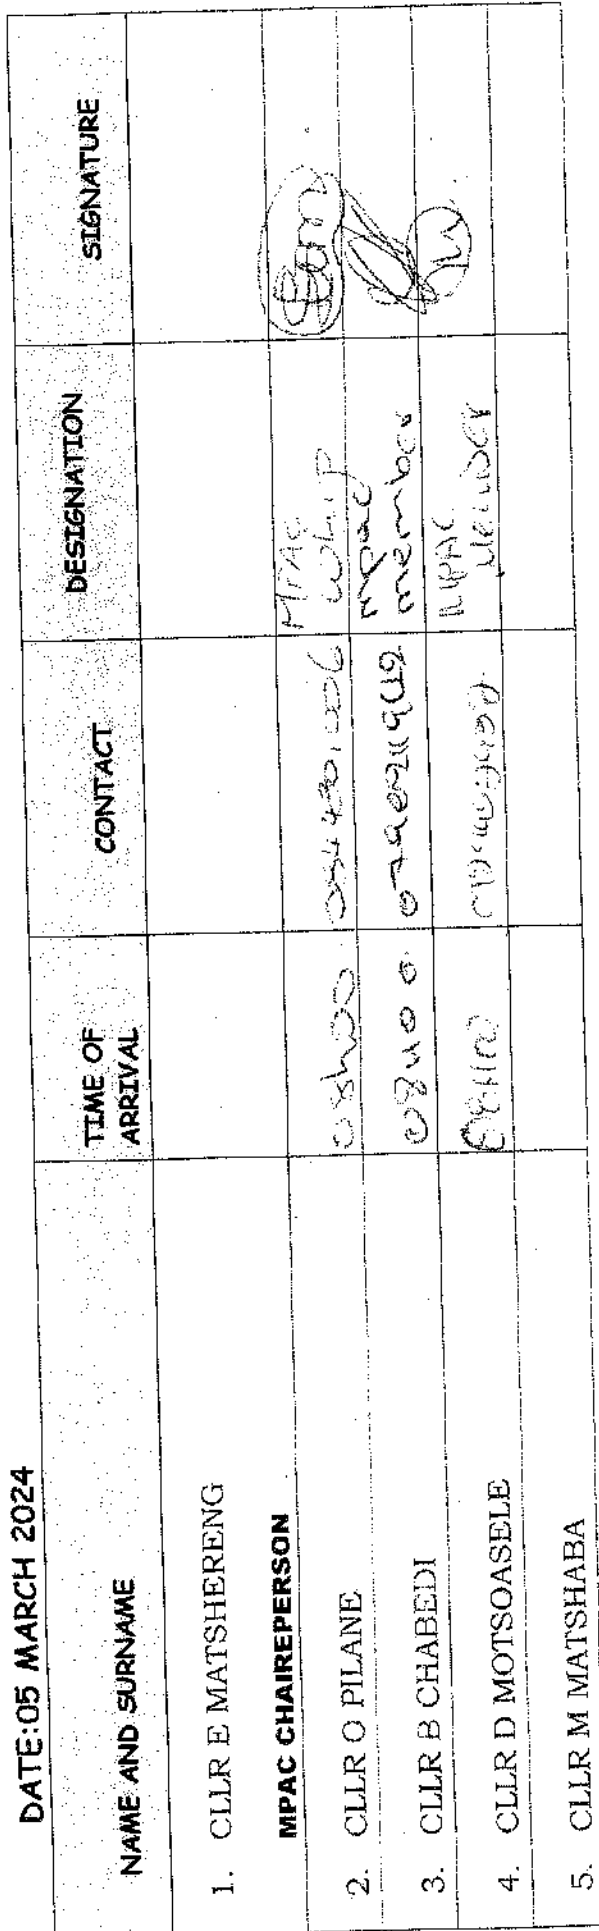 DATE:05 MARCH 2024
NAME AND SURNAME TIME OF ARRIVAL CONTACT DESIGNATION SIGNATURE
1. CLLR E MATSHERENG
MPAC CHAIREPERSON
2. CLLR O PILANE 08h00 MPAC Whip
3. CLLR B CHABEDI 08H00 mpac member
4. CLLR D MOTSOASELE MPAC Member
5. CLLR M MATSHABA